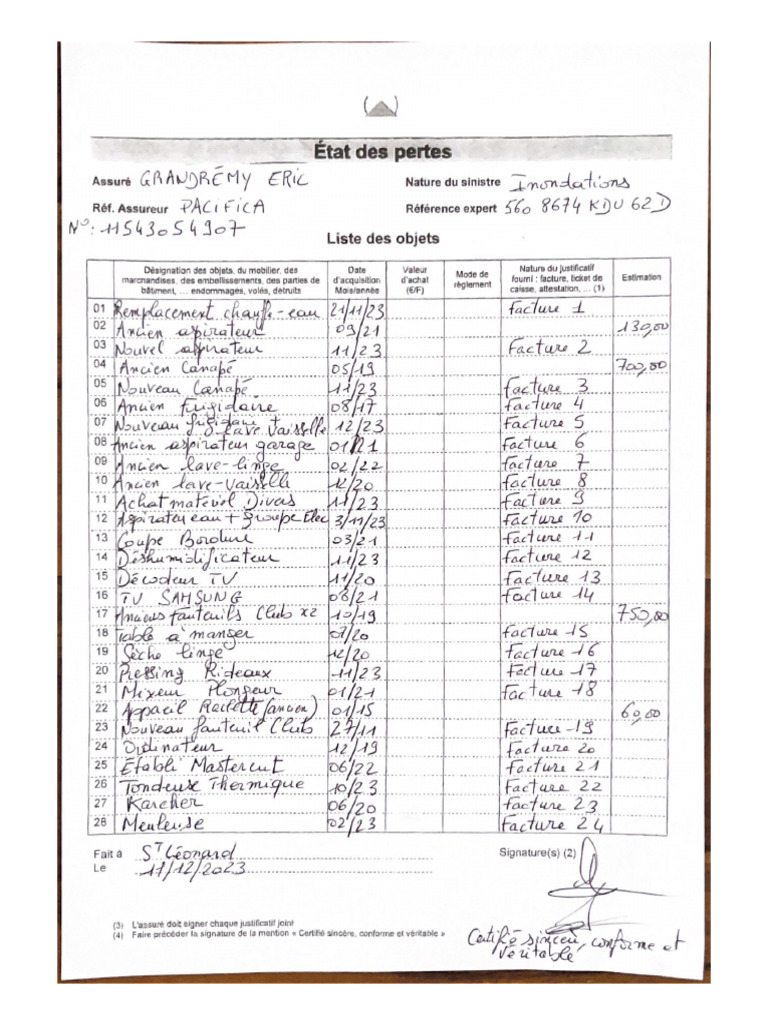 État des pertes
Assuré GRANDRÉMY ERIC Nature du sinistre Inondations
Réf. Assureur PACIFICA Référence expert 560 8674 KDU 62D
N°: 11543054907
Liste des objets
Désignation des objets, du mobilier, des marchandises, des embellissements, des parties de bâtiment, ... endommagés, volés, détruits Date d'acquisition Mois/année Valeur d'achat (€/F) Mode de règlement Nature du justificatif fourni : facture, ticket de caisse, attestation, ... (1) Estimation
01 Remplacement chauffe-eau 21/11/23 Facture 1
02 Ancien aspirateur 09/21 130,00
03 Nouvel aspirateur 11/23 Facture 2
04 Ancien Canapé 05/19 700,00
05 Nouveau Canapé 11/23 Facture 3
06 Ancien Frigidaire 08/17 Facture 4
07 Nouveau frigidaire + lave vaisselle 12/23 Facture 5
08 Ancien aspirateur garage 01/21 Facture 6
09 Ancien lave-linge 02/22 Facture 7
10 Ancien lave-vaiselle 12/20 Facture 8
11 Achat matériel Divas 11/23 Facture 9
12 Aspirateur eau + groupe Elec 3/11/23 Facture 10
13 Coupe Bordure 03/21 Facture 11
14 Déshumidificateur 11/23 Facture 12
15 Décodeur TV 11/20 Facture 13
16 TV SAMSUNG 08/21 Facture 14
17 Anciens fauteuils Club x2 10/19 750,00
18 Table a manger 07/20 Facture 15
19 Sèche linge 12/20 Facture 16
20 Pressing Rideaux 11/23 Facture 17
21 Mixeur Plongeur 01/21 Facture 18
22 Appareil Raclette (ancien) 01/15 60,00
23 Nouveau fauteuil Club 27/11 Facture 19
24 Ordinateur 12/19 Facture 20
25 Établi Mastercut 06/22 Facture 21
26 Tondeux Thermique 10/23 Facture 22
27 Karcher 06/20 Facture 23
28 Meuleuse 02/23 Facture 24
Fait à St Léonard Signature(s) (2)
Le 17/12/2023
(3) L'assuré doit signer chaque justificatif joint
(4) Faire précéder la signature de la mention « Certifié sincère, conforme et véritable »
Certifié sincère, conforme et
véritable